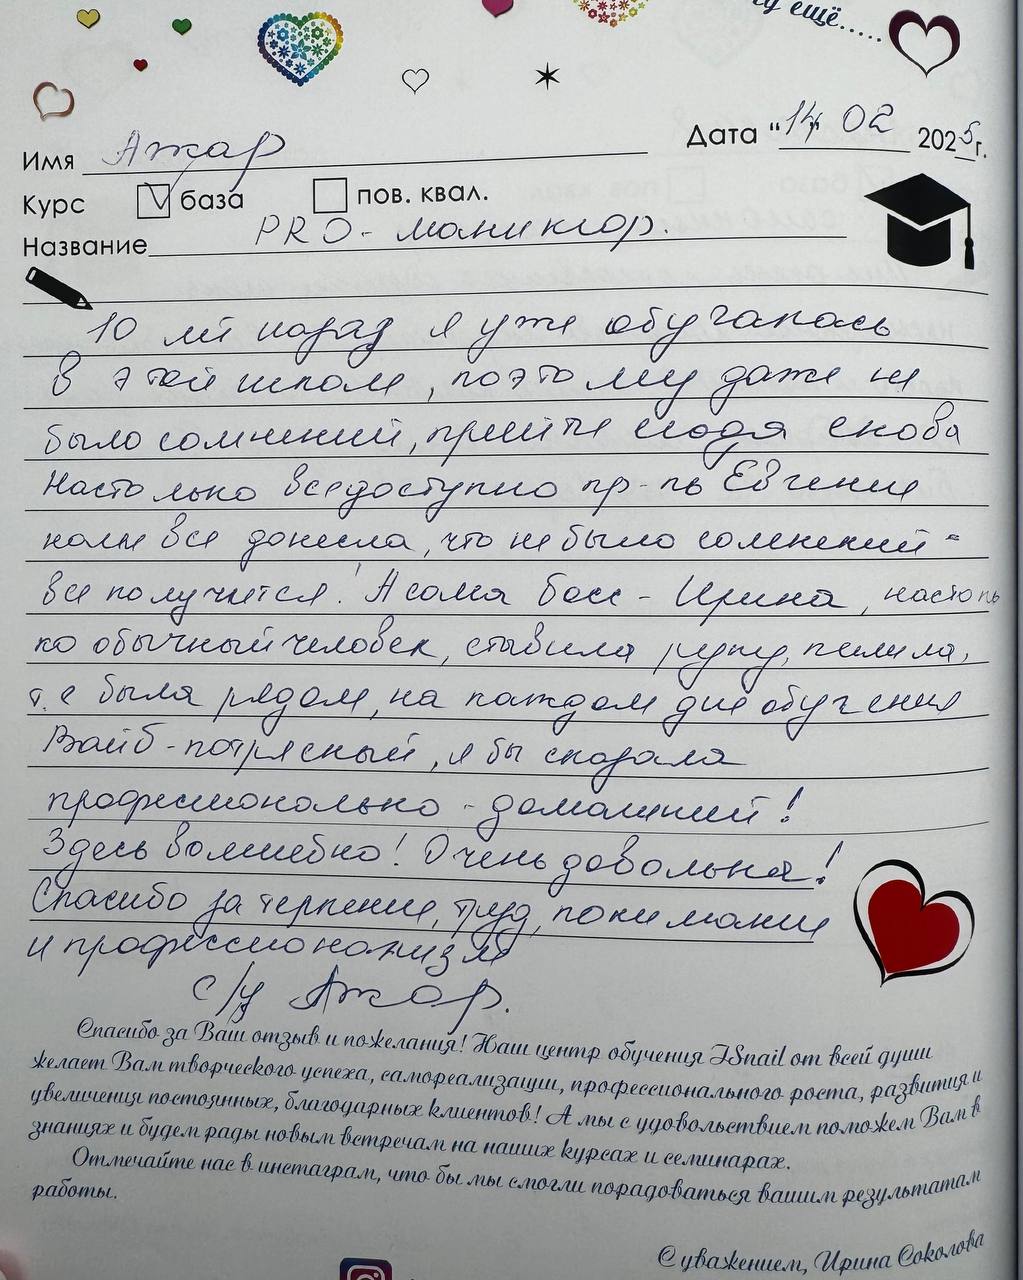 ещё.....
Дата "14" 02 2025г.
Имя Ажар
Курс база пов. квал.
Название PRO - маникюр.
10 лет назад я уже обучалась
в этой школе, поэтому даже не
было сомнений, прийти сюда снова
Настолько все доступно пр-ль Евгения
нам все донесла, что не было сомнений -
все получится! А сама босс - Ирина, настоль
ко обычный человек, ставила руку, пилила,
т.е была рядом, на каждом дне обучения
Вайб - потрясный, я бы сказала
профессионально - домашний!
Здесь волшебно! Очень довольна!
Спасибо за терпение, труд, понимание
и профессионализм
с/у Ажар.
Спасибо за Ваш отзыв и пожелания! Наш центр обучения ISnail от всей души
желает Вам творческого успеха, самореализации, профессионального роста, развития и
увеличения постоянных, благодарных клиентов! А мы с удовольствием поможем Вам в
знаниях и будем рады новым встречам на наших курсах и семинарах.
Отмечайте нас в инстаграм, что бы мы смогли порадоваться вашим результатам
работы.
С уважением, Ирина Соколова